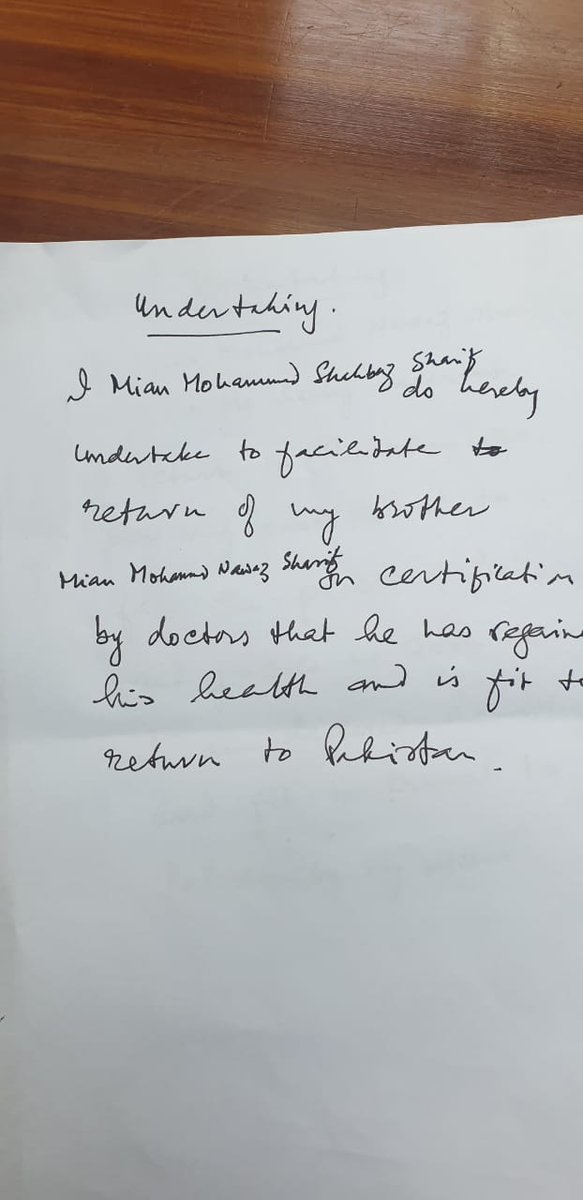 Undertaking.
I Mian Mohammed Shehbaz Sharif do hereby
undertake to facilitate to
return of my brother
Mian Mohammd Nawaz Sharif on certification
by doctors that he has regaine
his health and is fit to
return to Pakistan.